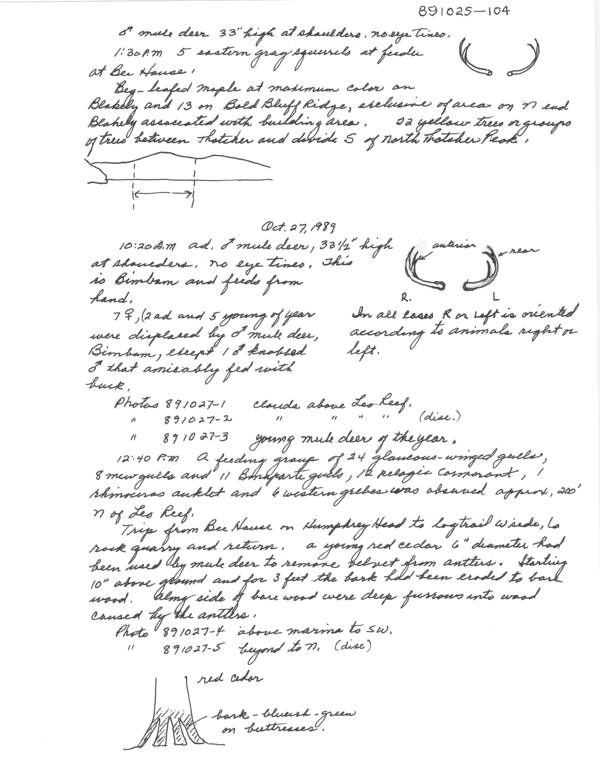 891025-104
♂ mule deer 33" high at shoulders. no eye tines.
1:30 P.M 5 eastern gray squirrels at feeder
at Bee House.
Big-leafed maple at maximum color on
Blakely and 13 on Bold Bluff Ridge, exclusive of area on N end
Blakely associated with building area. 22 yellow trees or groups
of trees between Thatcher and divide S of North Thatcher Peak.
Oct. 27, 1989
10:20 A.M ad. ♂ mule deer, 33½" high
at shoulders. no eye tines. This
is Bimbam and feeds from
hand.
anterior
rear
R. L
7 ♀, (2 ad and 5 young of year
were displaced by ♂ mule deer,
Bimbam, except 1 ♂ knobbed
♂ that amicably fed with
buck.
In all cases R or Left is oriented
according to animals right or
left.
Photos 891027-1 clouds above Leo Reef.
" 891027-2 " " " " (disc.)
" 891027-3 young mule deer of the year.
12:40 P.M A feeding group of 24 glaucous-winged gulls,
8 mew gulls and 11 Bonaparte gulls, 12 pelagic cormorant, 1
rhinoceros auklet and 6 western grebes was observed approx. 200'
N of Leo Reef.
Trip from Bee House on Humphrey Head to logtrail W side, to
rock quarry and return. a young red cedar 6" diameter had
been used by mule deer to remove velvet from antlers. Starting
10" above ground and for 3 feet the bark had been eroded to bare
wood. Along side of bare wood were deep furrows into wood
caused by the antlers.
Photo 891027-4 above marina to SW.
" 891027-5 beyond to N. (disc)
red cedar
bark - blueish-green
on buttresses.